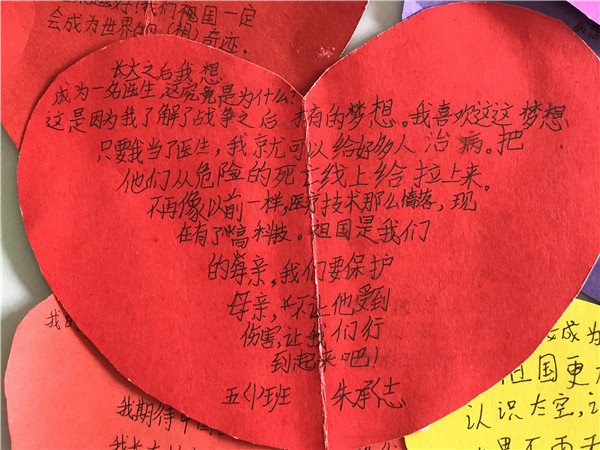 我们祖国一定
会成为世界的(相)奇迹.
长大之后我想
成为一名医生,这究竟是为什么?
这是因为我了解了战争之后 才有的梦想。我喜欢这这梦想
只要我当了医生,我就可以给好多人治病。把
他们从危险的死亡线上给拉上来。
不再像以前一样,医疗技术那么惰落,现
在有了高科技。祖国是我们
的母亲,我们要保护
母亲,不让他受到
伤害,让我们行
到起来吧!
五〈1〉班 朱承志
我期待中国
我长大
成为
祖国更
认识太空,